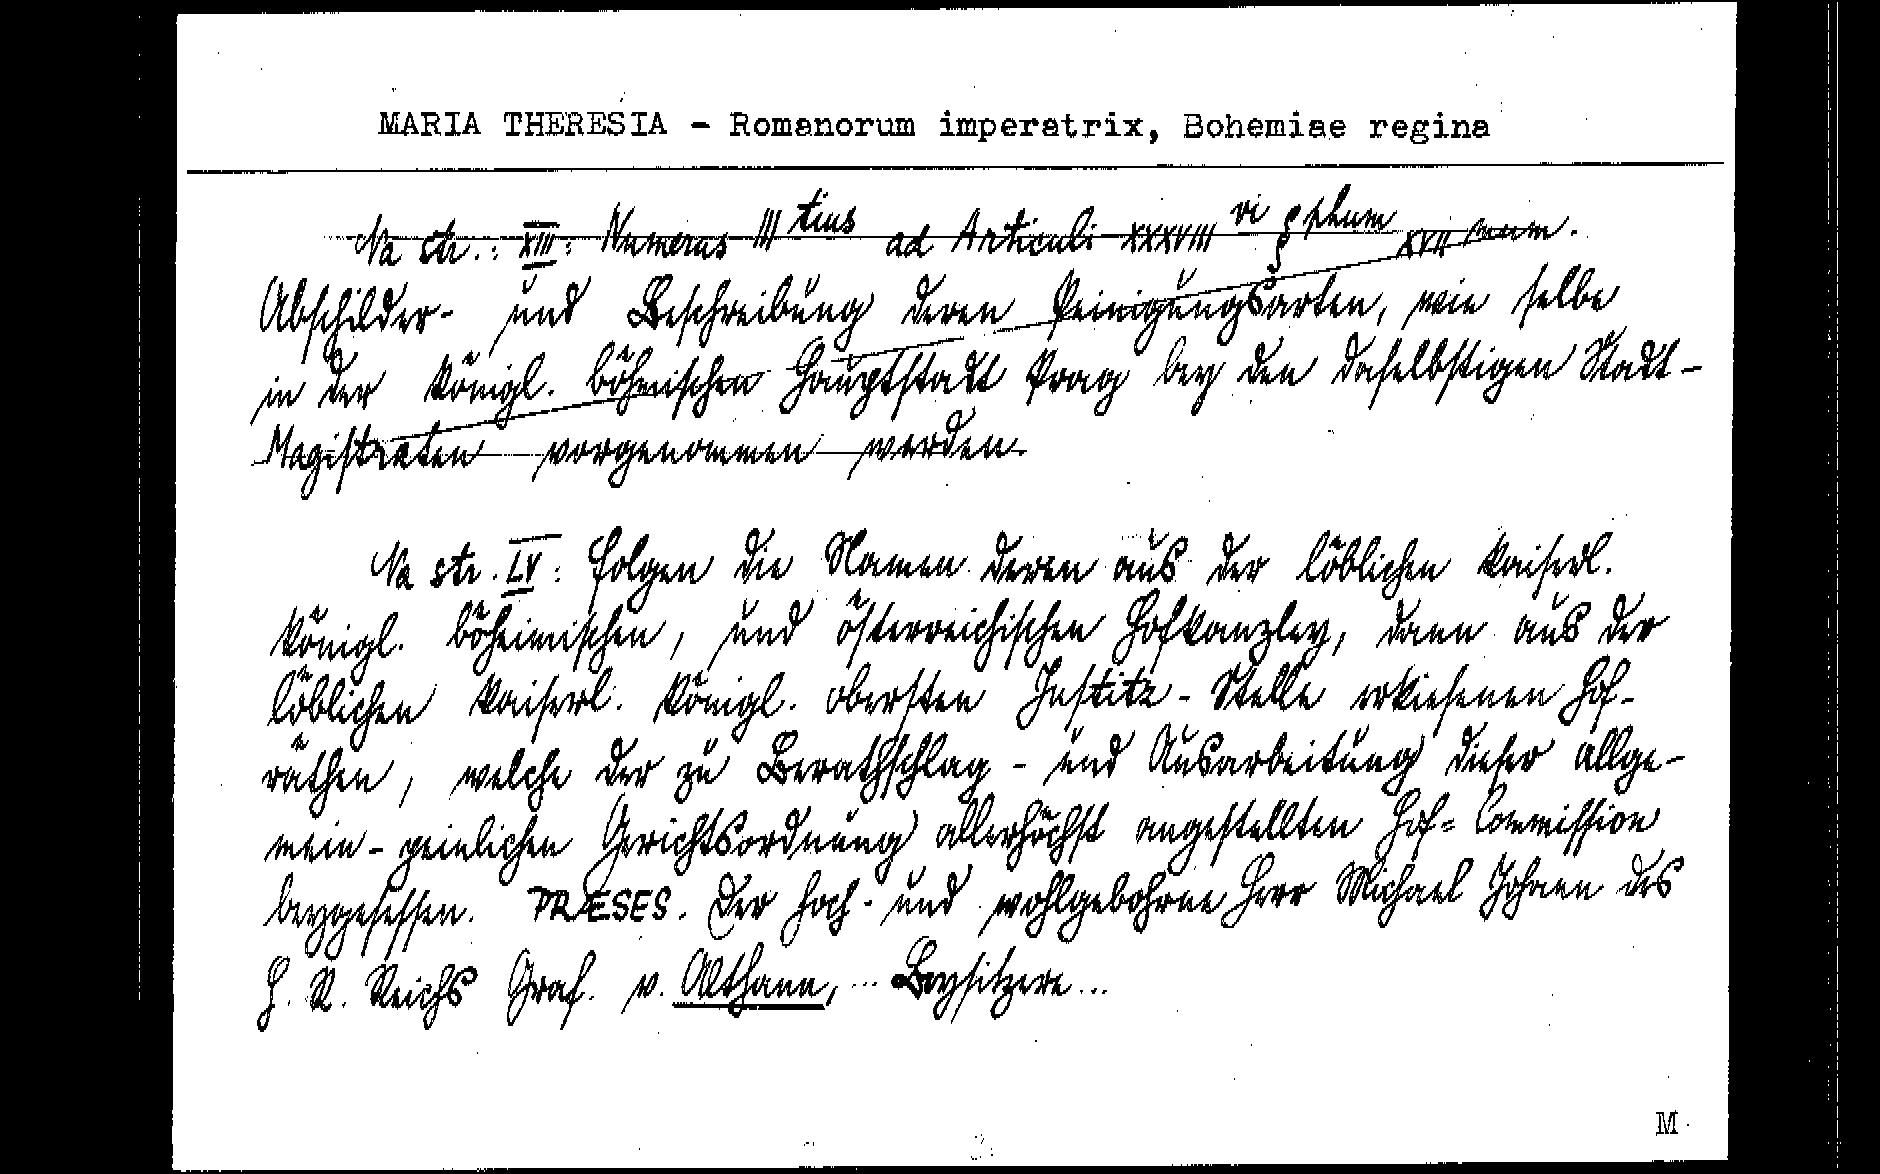 MARIA THERESIA - Romanorum imperatrix, Bohemiae regina
Na str.: XIII: Numerus III tius ad Articuli XXXVIII vi § phum XVII mum.
Abschilder- und Beschreibung deren Peinigungsarten, wie selbe
in der königl. böhmischen Hauptstadt Prag bey den daselbstigen Stadt-
Magistraten vorgenommen werden.
Na str. LV: Folgen die Namen deren aus der löblichen kaiserl.
königl. böheimischen, und österreichischen Hofkanzley, dann aus der
löblichen kaiserl. königl. obersten Justitz-Stelle erkiesenen Hof-
räthen, welche der zu Berathschlag- und Ausarbeitung dieser allge-
mein-peinlichen Gerichtsordnung allerhöchst angestellten Hof=Commission
beygesessen. PRÆSES. Der Hoch- und wohlgebohrne Herr Michael Johann des
H. R. Reichs Graf. v. Althann, ... Beysitzere ...
M